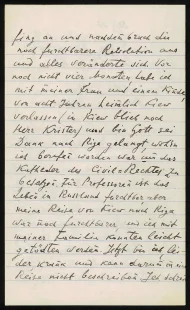 fing an und nachdem brach die
noch furchtbarere Revolution aus
und alles veränderte sich. Vor
noch nicht vier Monaten habe ich
mit meiner Frau und einem Kinde
vor acht Jahren heimlich Kiew
verlassen (in Kiew blieb noch
Herr Krister) und bin Gott sei
Dank nach Riga gelangt, wohin
ich berufen worden war um das
Katheder des Civil-Rechtes zu
besetzen. Für Professoren ist das
Leben in Russland furchtbar aber
meine Reise von Kiew nach Riga
war noch furchtbarer und ich mit
meiner Familie konnten leicht
getödtet werden. Jetzt bin ich lei-
der krank und kann darum meine
Reise nicht beschreiben. Ich